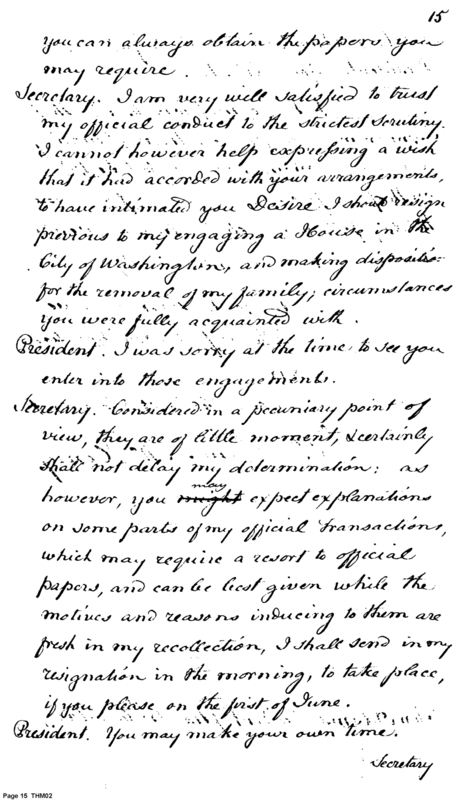 15
you can always obtain the papers you
may require.
Secretary. I am very well satisfied to trust
my official conduct to the strictest scrutiny.
I cannot however help expressing a wish
that it had accorded with your arrangements,
to have intimated your Desire I should resign
previous to my engaging a House in the
City of Washington, and making dispositio=
for the removal of my family; circumstances
you were fully acquainted with.
President. I was sorry at the time to see you
enter into those engagements.
Secretary. Considered in a pecuniary point of
view, they are of little moment, & certainly
shall not delay my determination: as
may
however, you might expect explanations
on some parts of my official transactions,
which may require a resort to official
papers, and can be best given while the
motives and reasons inducing to them are
fresh in my recollection, I shall send in my
resignation in the morning, to take place,
if you please on the first of June.
President. You may make your own time.
Secretary
Page 15 THM02